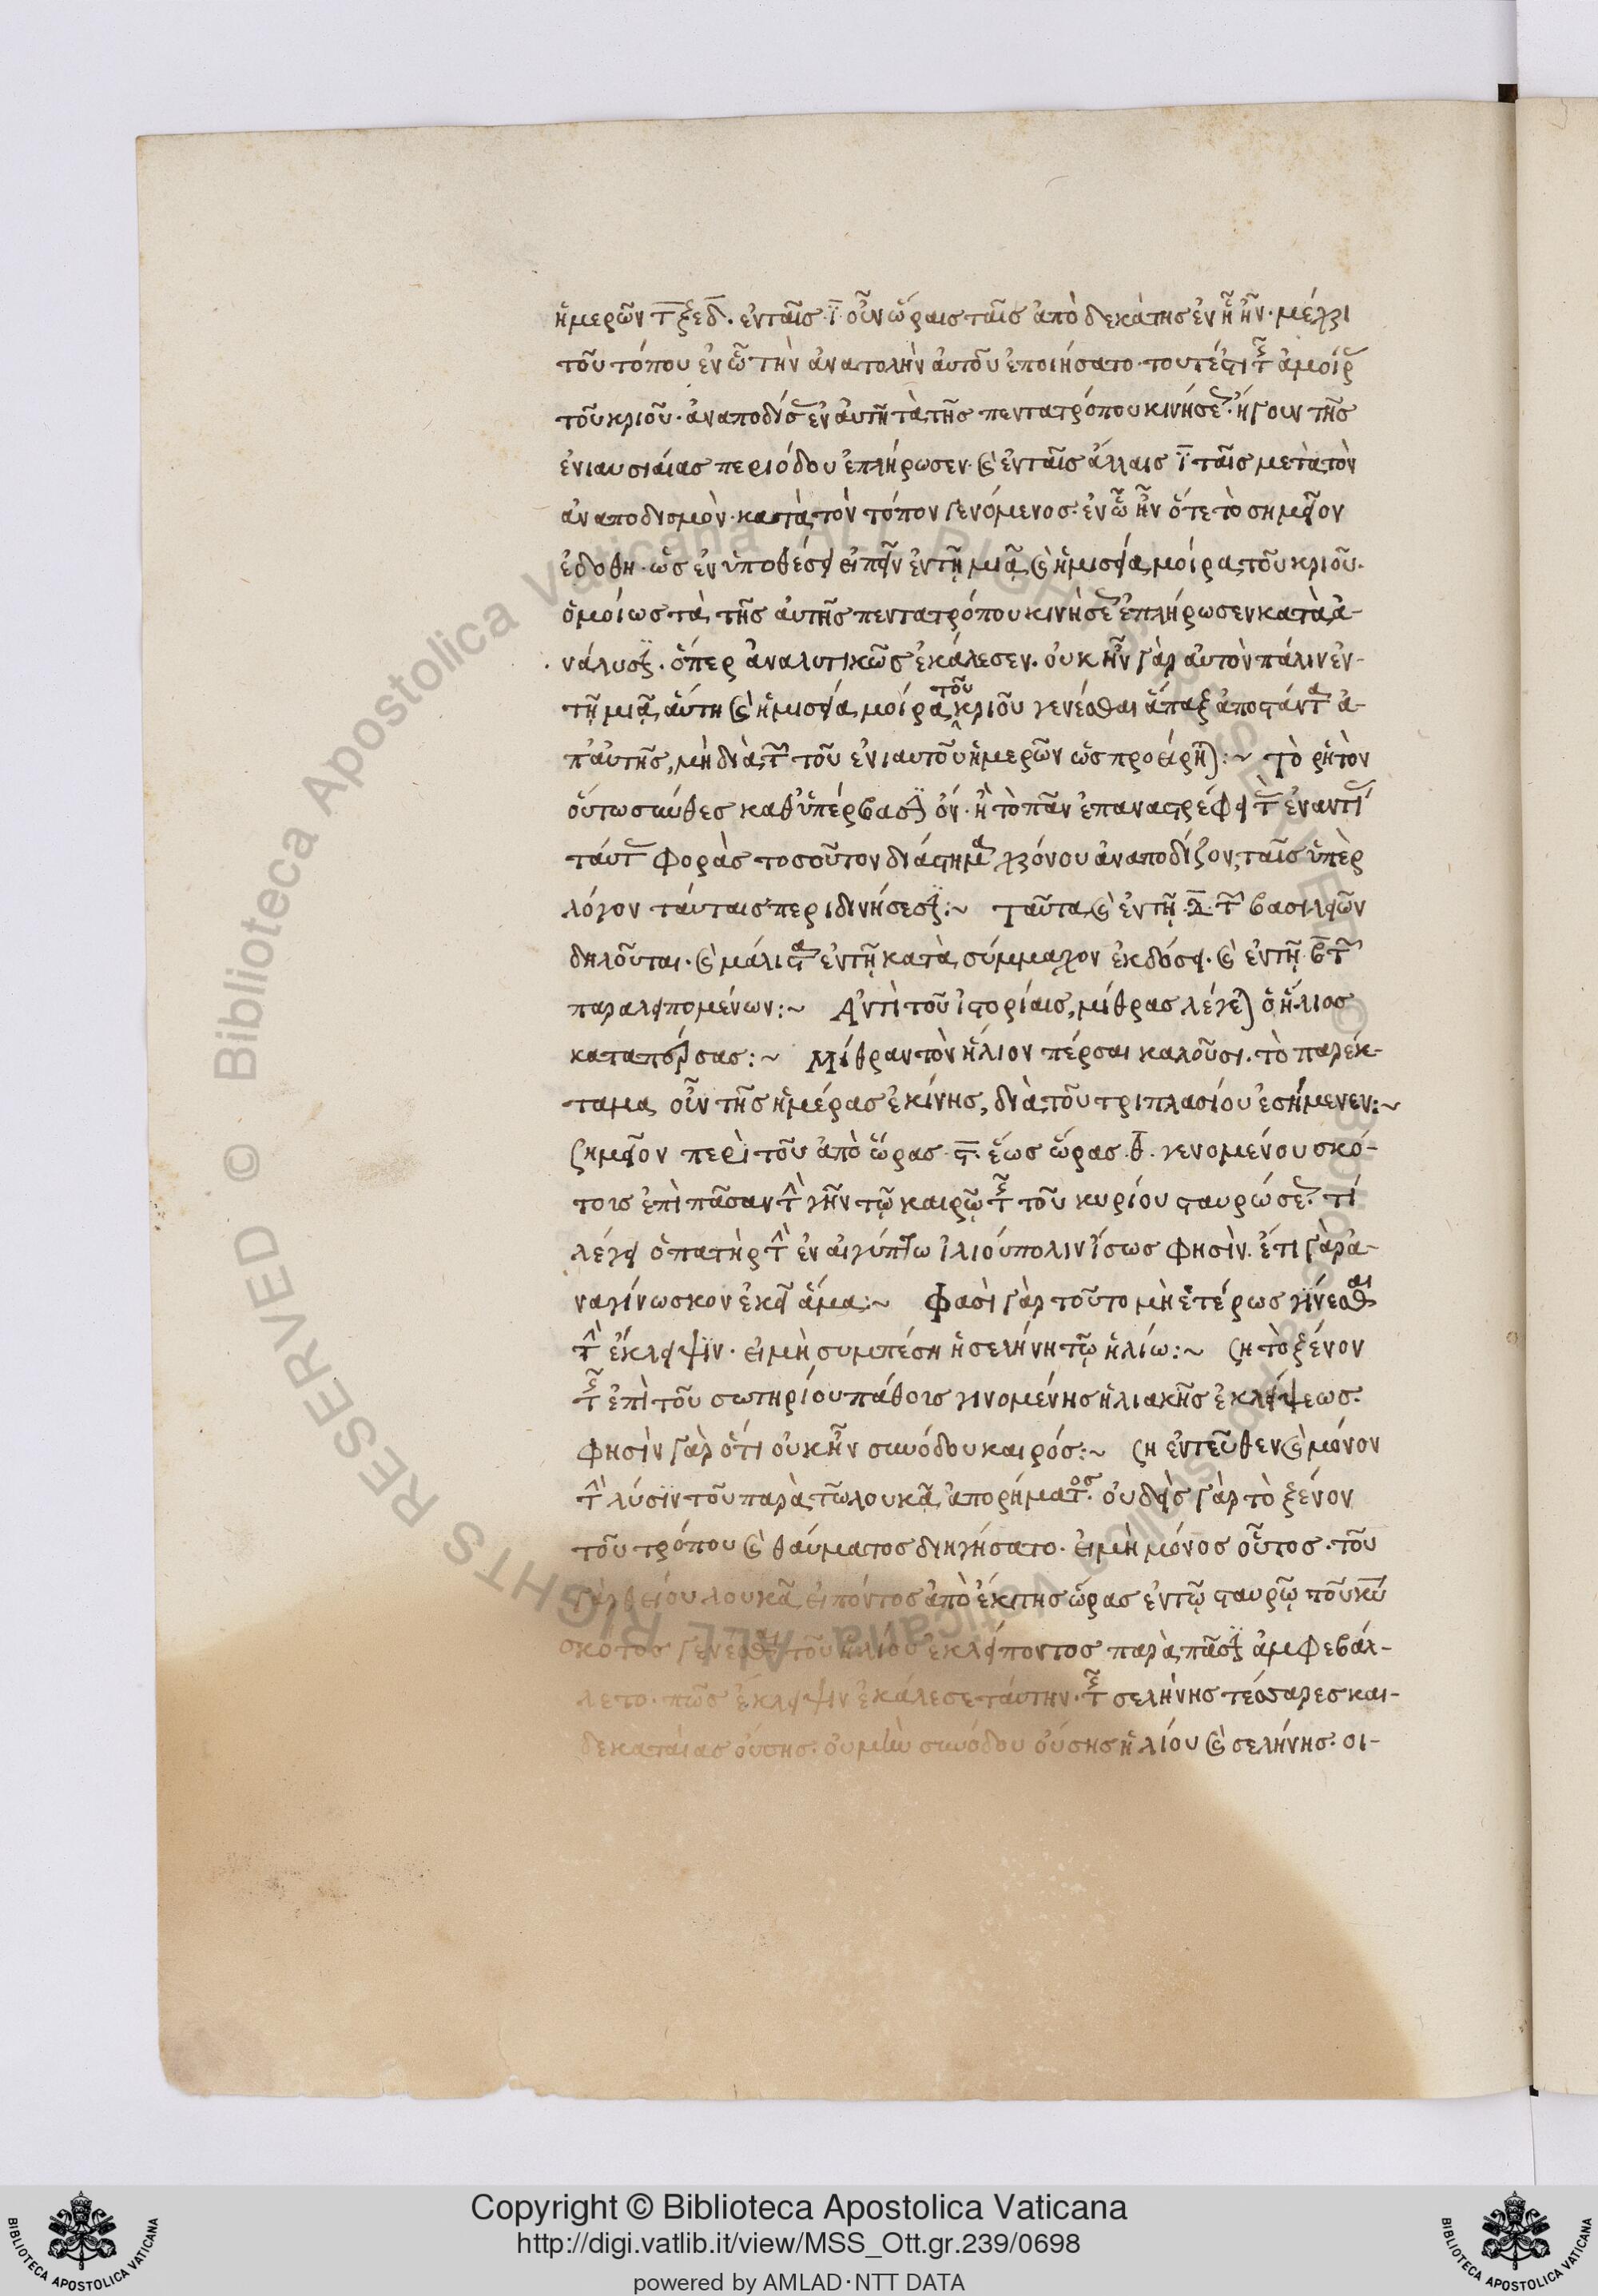 ἡμερῶν τ̅ξ̅ε̅δ̅. ἐν ταῖς ϊ̅ οὖν ὥραις ταῖς ἀπὸ δεκάτης ἐν ᾗ ἦν· μέχρι
τοῦ τόπου ἐν ᾧ τὴν ἀνατολὴν αὐτοῦ ἐποιήσατο· τουτέστι τῆς α μοίρ
τοῦ κριοῦ· ἀναποδίσας ἐν αὐτῇ τὰ τῆς πεντατρόπου κινήσεως· ἤγουν τῆς
ἐνιαυσιαίας περιόδου ἐπλήρωσεν· καὶ ἐν ταῖς ἄλλαις ϊ̅ ταῖς μετὰ τὸν
ἀναποδισμὸν· κατὰ τὸν τόπον γενόμενος· ἐν ᾧ ἦν ὅτε τὸ σημεῖον
ἐδόθη· ὡς ἐν ὑποθέσει εἰπεῖν ἐν τῇ μιᾷ καὶ ἡμισεία μοίρα τοῦ κριοῦ·
ὁμοίως τὰ τῆς αὐτῆς πεντατρόπου κινήσεως ἐπλήρωσεν κατὰ ἀ-
νάλυσιν· ὅπερ ἀναλυτικῶς ἐκάλεσεν· οὐκ ἦν γὰρ αὐτὸν πάλιν ἐν-
τῇ μιᾷ αὐτη καὶ ἡμισεία μοίρα τοῦ κριοῦ γενέσθαι ἅπαξ ἀποστάντα ἀ-
π' αὐτῆς, μὴ διὰ τῶν τοῦ ἐνιαυτοῦ ἡμερῶν ὡς προείρηται:~ τὸ ῥητὸν
οὕτω σύνθες καθ' ὑπέρβασιν ὄν· ἢ τὸ πᾶν ἐπαναστρέφει τὴν ἐναντίαν
ταύτην φορὰς τοσοῦτον διάστημα χρόνου ἀναποδίζον, ταῖς ὑπὲρ
λόγον ταύταις περιδινήσεσιν:~ ταῦτα καὶ ἐν τῇ Δ τῶν βασιλειῶν
δηλοῦται· καὶ μάλιστα ἐν τῇ κατὰ σύμμαχον ἐκδόσει· καὶ ἐν τῇ β̅ τῶν
παραλειπομένων:~ Ἀντὶ τοῦ ἱστορίαις, μίθρας λέγεται ὁ ἥλιος
κατα πέρσας:~ Μίθραν τὸν ἥλιον πέρσαι καλοῦσι· τὸ παρέκ-
ταμα οὖν τῆς ἡμέρας ἐκίνης, διὰ τοῦ τριπλασίου ἐσήμενεν:~
ζημεῖον περὶ τοῦ ἀπὸ ὥρας ς̅· ἕως ὥρας θ̅· γενομένου σκό-
τοις ἐπὶ πᾶσαν τὴν γῆν τῷ καιρῷ τῆς τοῦ κυρίου σταυρώσεως· τί
λέγει ὁ πατὴρ τὴν ἐν αἰγύπτω ἰλιούπολιν ἴσως φησὶν· ἔτι γὰρ ἀ-
ναγίνωσκον ἐκεῖ ἅμα:~ Φασὶ γὰρ τοῦτο μὴ ἑτέρως γίνεσθαι
τὴν ἔκλειψϊν· εἰ μὴ συμπέση ἡ σελήνη τῷ ἡλίω:~ ζη τὸ ξένον
τῆς ἐπὶ τοῦ σωτηρίου πάθοις γινομένης ἡλιακῆς ἐκλείψεως·
φησὶν γὰρ ὅτι οὐκ ἦν συνόδου καιρός:~ ζη ἐντεῦθεν καὶ μόνον
τὴν λύσϊν τοῦ παρὰ τῶ λουκᾷ ἀπορήματος· οὐδεὶς γὰρ τὸ ξένον
τοῦ τρόπου καὶ θαύματος διηγήσατο· εἰ μὴ μόνος οὗτος· τοῦ
γὰρ θείου λουκᾶ εἰπόντος ἀπὸ ἕκτης ὥρας ἐν τῷ σταυρῷ τοῦ κυ̅
σκότος γενέσθαι τοῦ ἡλίου ἐκλείποντος παρὰ πᾶσιν ἀμφεβάλ-
λετο· πῶς ἔκλειψιν ἐκάλεσε ταύτην· τῆς σελήνης τέσσαρες και-
δεκαταίας οὔσης· οὐ μὴν συνόδου οὔσης ἡλίου καὶ σελήνης· οι-
Copyright © Biblioteca Apostolica Vaticana
http://digi.vatlib.it/view/MSS_Ott.gr.239/0698
powered by AMLAD·NTT DATA